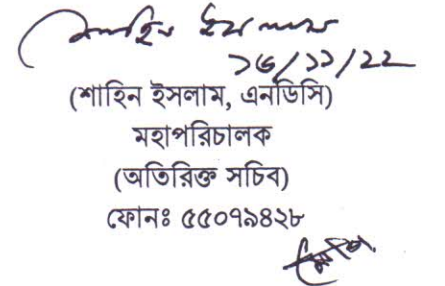 শাহিন ইসলাম
১৬/১১/২২
(শাহিন ইসলাম, এনডিসি)
মহাপরিচালক
(অতিরিক্ত সচিব)
ফোনঃ ৫৫০৭৯৪২৮